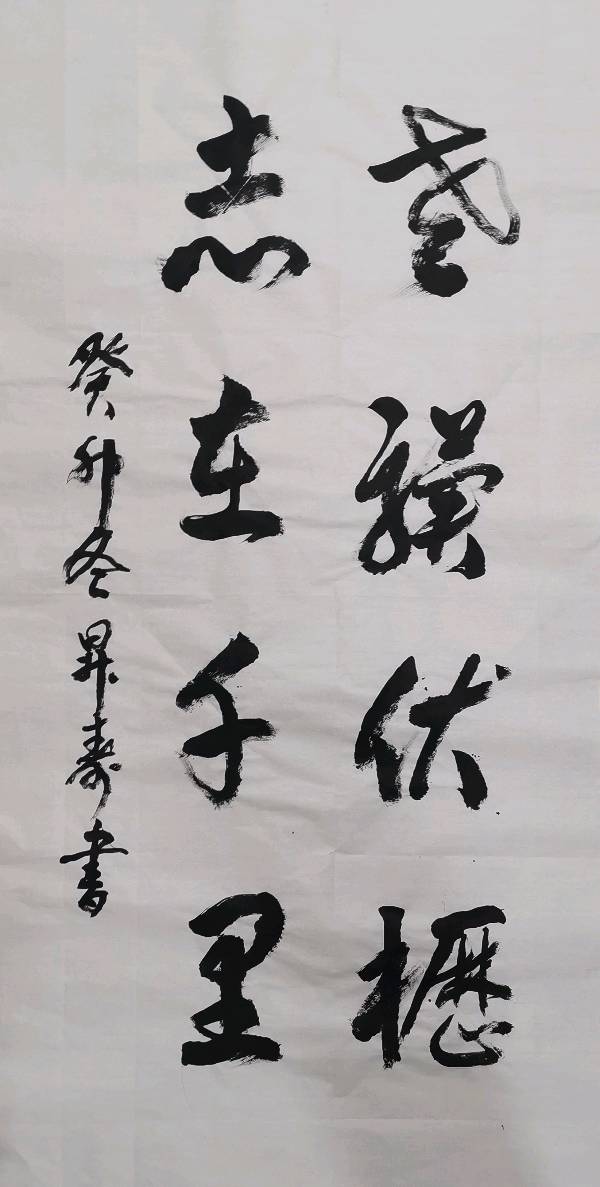 老驥伏櫪
志在千里
癸卯冬昇寿書